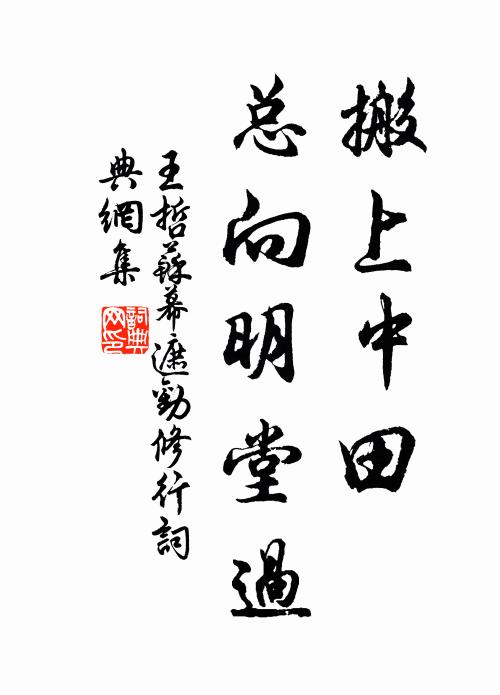 搬上中田
总向明堂過
王哲蘇幕遮勸修行詞
典網集
詞典网印